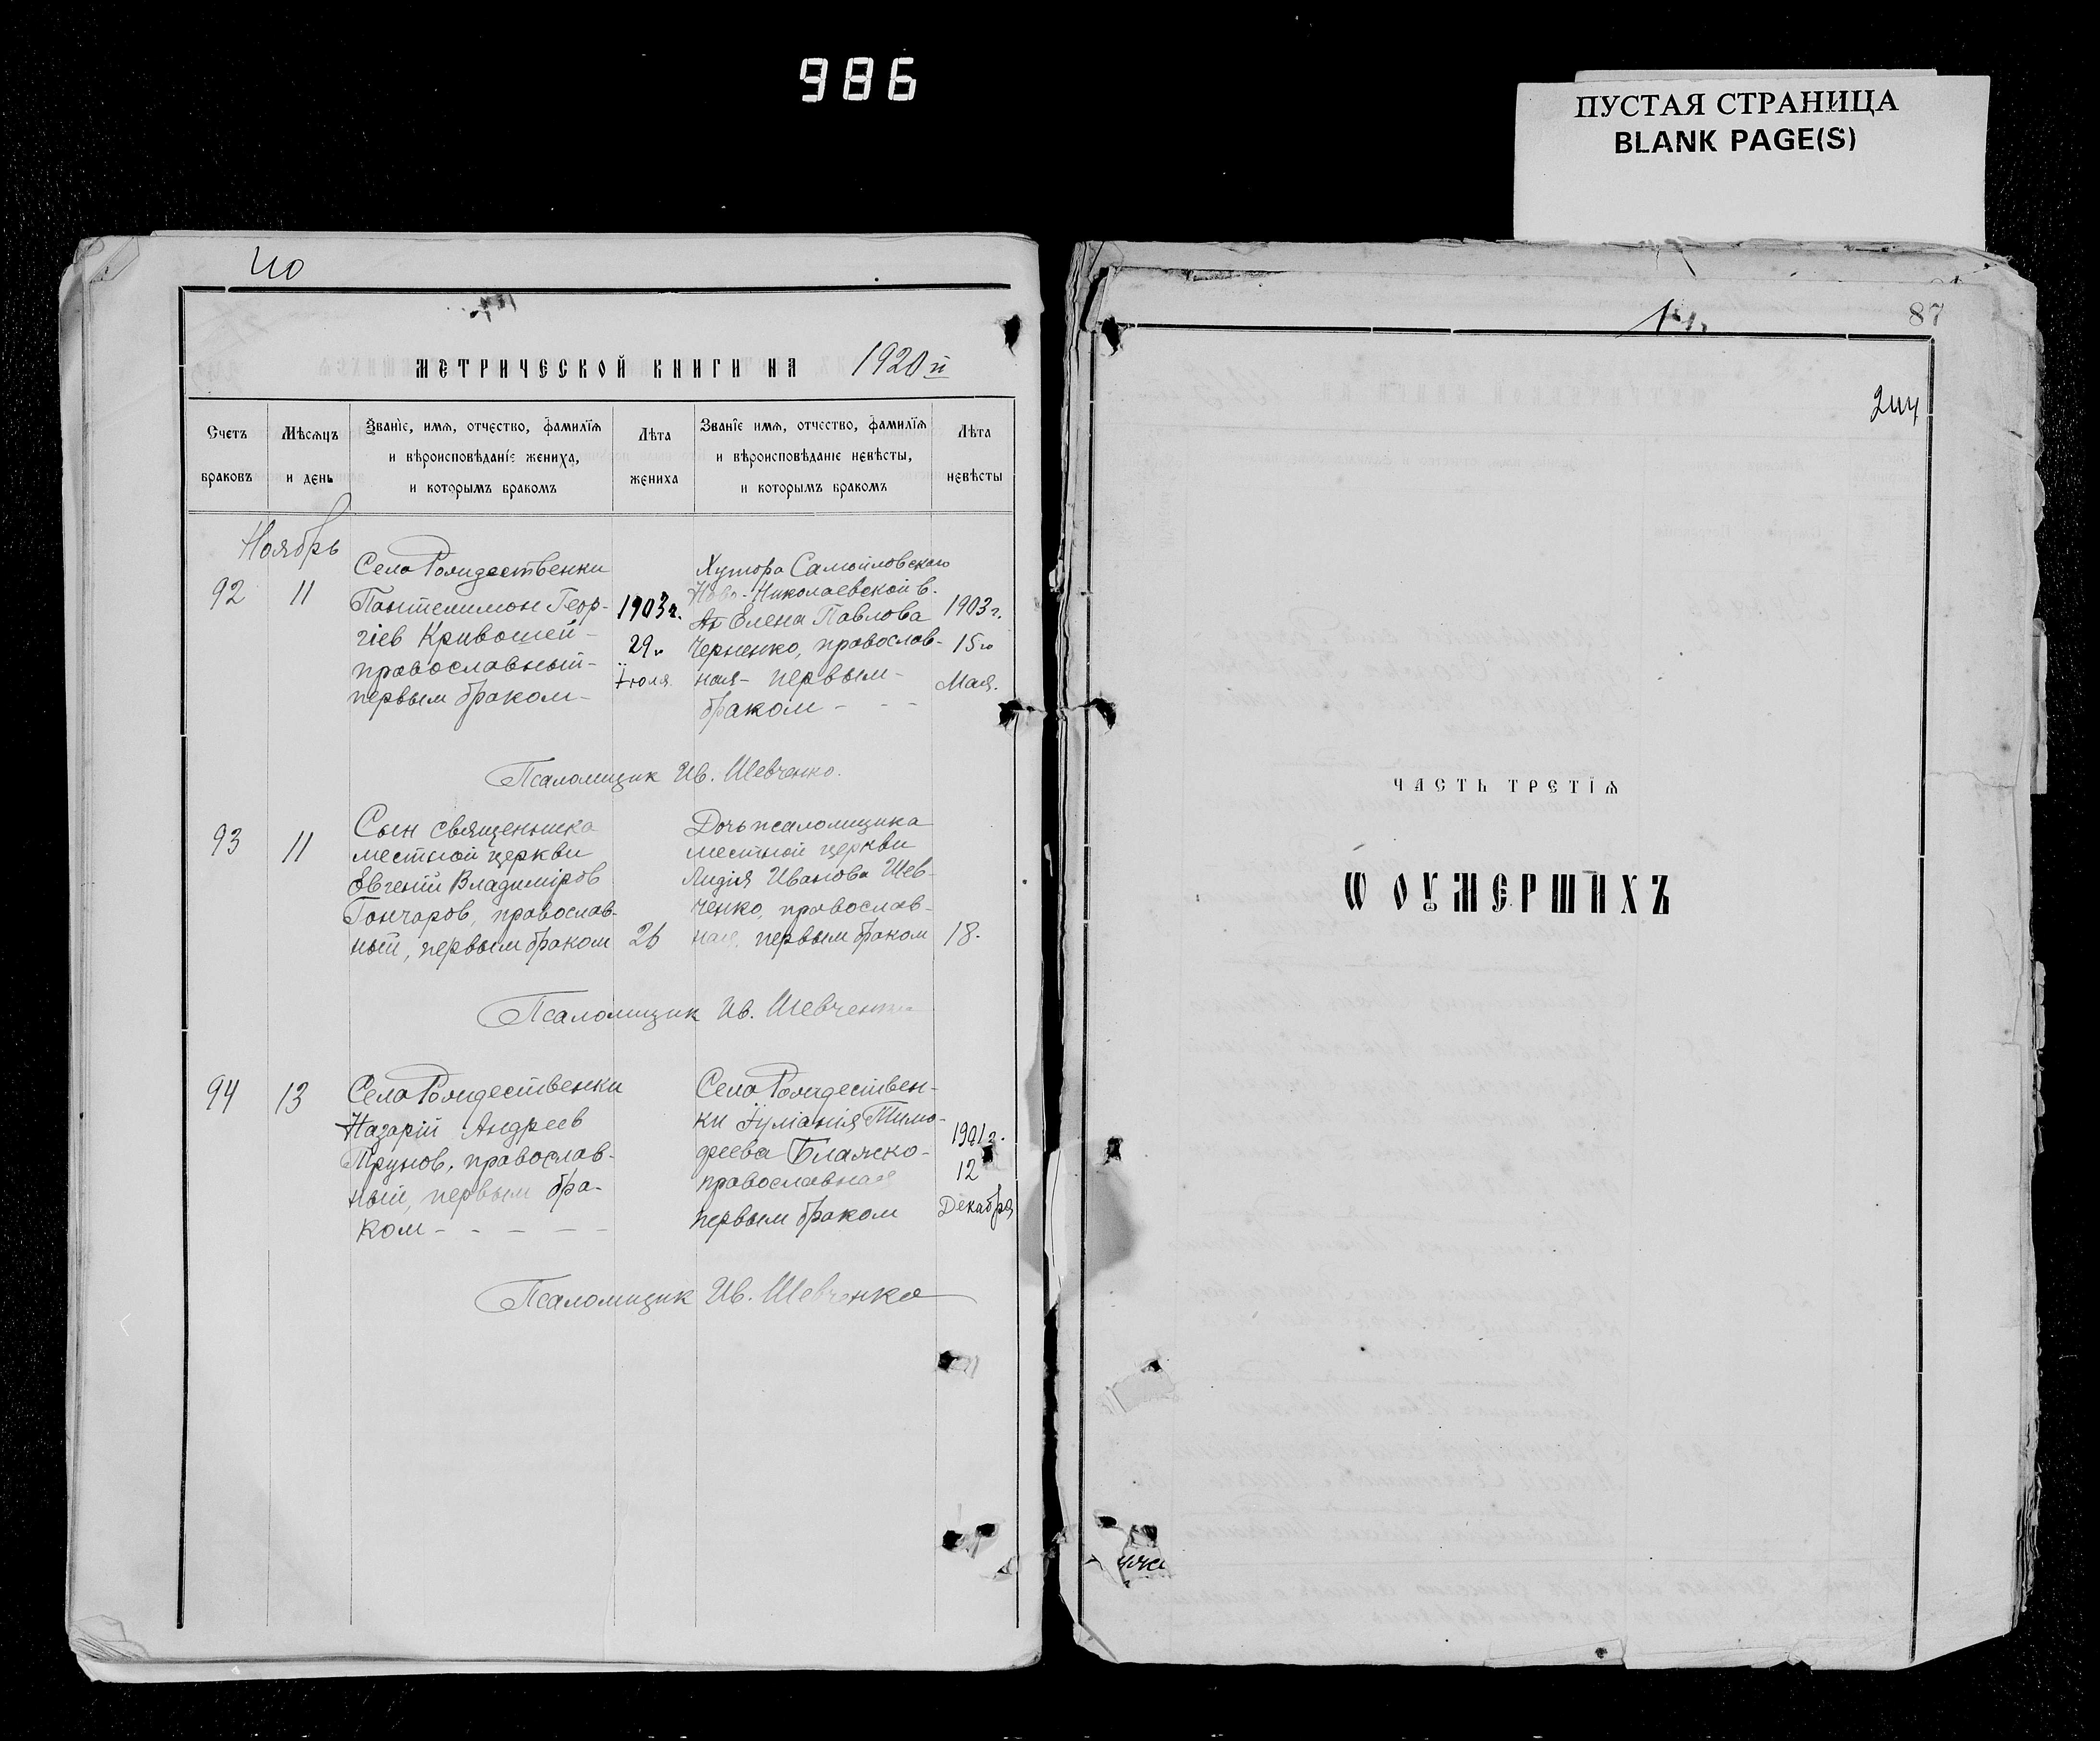 986
ПУСТАЯ СТРАНИЦА
BLANK PAGE(S)
МЕТРИЧЕСКОЙ КНИГИ НА 1920 й
Счетъ браковъ
Мѣсяцъ и день
Званіе, имя, отчество, фамилїя и вѣроисповѣданіе жениха, и которымъ бракомъ
Лѣта жениха
Званіе имя, отчество, фамилїя и вѣроисповѣданіе невѣсты, и которымъ бракомъ
Лѣта невѣсты
Ноябрь
92
11
Села Рождественки
Пантелимон Геор-
гіев Кривошей -
православный -
первым браком -
1903 г.
29го
Іюля
Хутора Самойловскаго
Ново-Николаевской в.
Елена Павлова
Черненко, православ-
ная - первым -
браком - - -
1903 г.
15го
Мая.
Псаломщик Ив. Шевченко.
93
11
Сын священника
местной церкви
Евгеній Владиміров
Гончаров, православ-
ный, первым браком
26
Дочь псаломщика
местной церкви
Лидія Иванова Шев-
ченко, православ-
ная, первым браком
18.
Псаломщик Ив. Шевченко
94
13
Села Рождественки
Назарій Андреев
Трунов, православ-
ный, первым бра-
ком - - - - -
Села Рождествен-
ки Іуліанія Тимо-
феева Блажко -
православная
первым браком
1901 г.
12
Декабря
Псаломщик Ив. Шевченко
87
244
ЧАСТЬ ТРЕТІЯ
Ѡ ОУМЕРШИХЪ